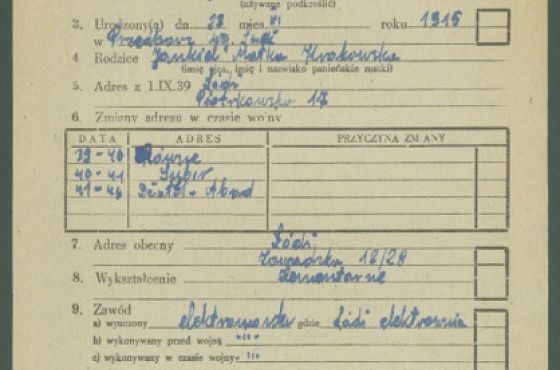 (używane podkreślić)
3. Urodzony(a) dn. 28 mies. VI roku 1915
w Przedbórz
4. Rodzice Jankiel, Małka Krakowska
(imię ojca, imię i nazwisko panieńskie matki)
5. Adres z 1.IX.39 Łódź
Piotrkowska 17
6. Zmiany adresu w czasie wojny
DATA ADRES PRZYCZYNA ZMIANY
39-40 Równe
40-41 Sybir
41-46
7. Adres obecny Łódź
Zawadzka 12/28
8. Wykształcenie Elementarne
9. Zawód
a) wyuczony elektromonter gdzie Łódź elektrownia
b) wykonywany przed wojną "..
c) wykonywany w czasie wojny "..